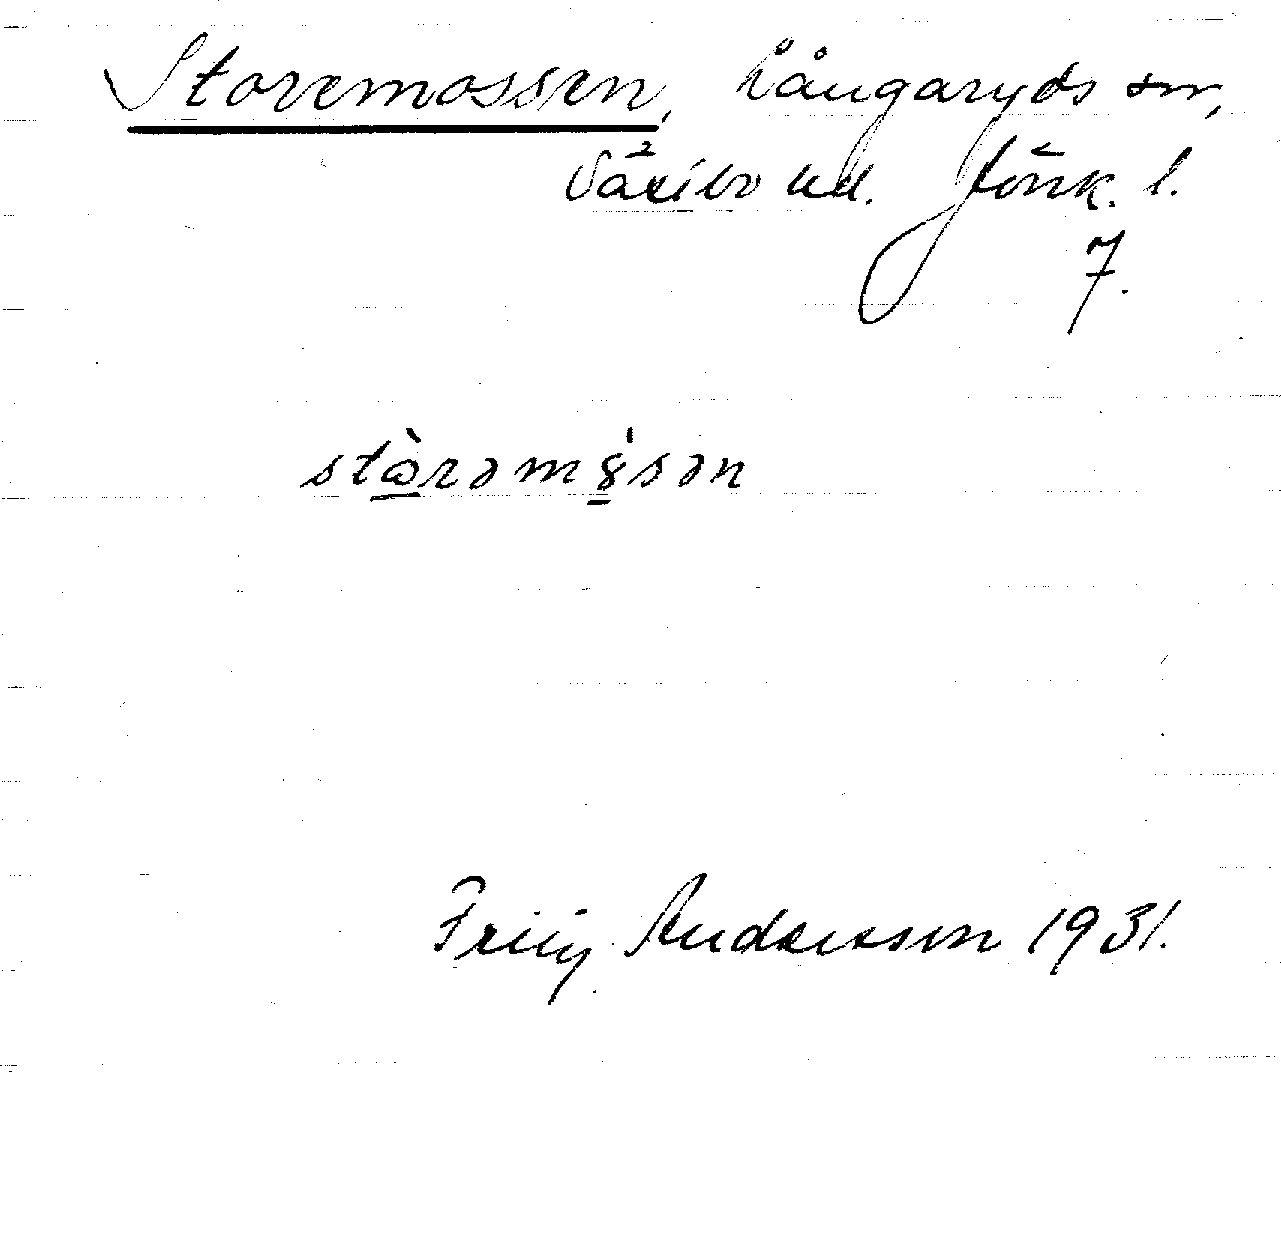 Storemossen, Långaryds sn,
Västbo hd. Jönk. l.
7.
Andersson 1931.